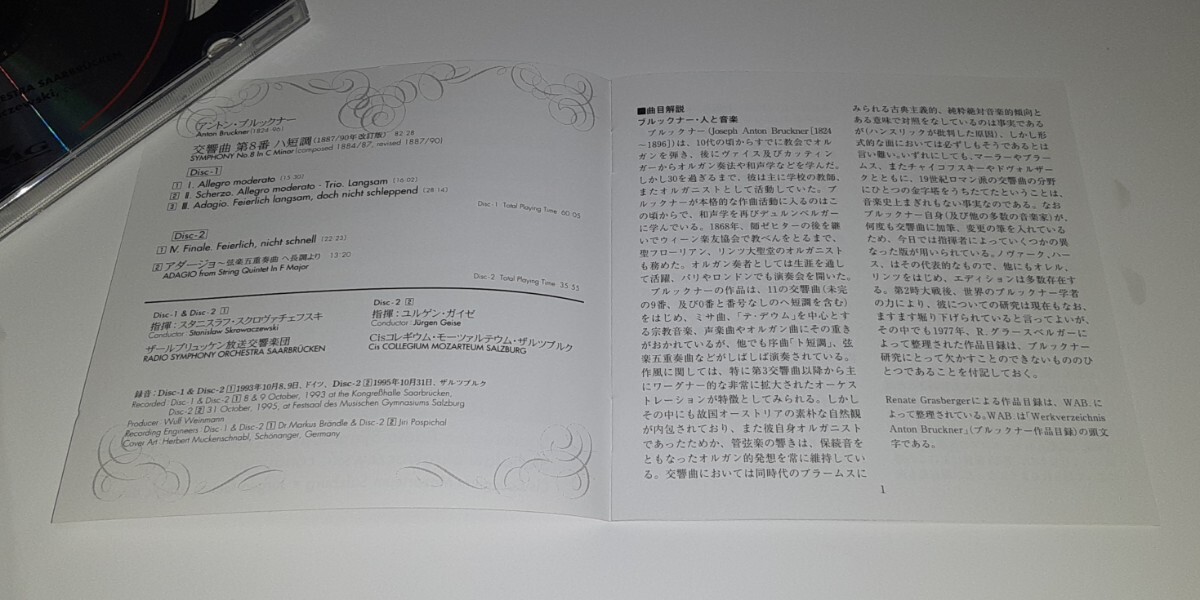 ESTRA SAARBRÜCKEN
アントン・ブルックナー
Anton Bruckner (1824-96)
交響曲 第8番 ハ短調 (1887/90年改訂版) 82:28
SYMPHONY No.8 in C Minor (composed 1884/87, revised 1887/90)
Disc-1
1 I. Allegro moderato (15:30)
2 II. Scherzo. Allegro moderato - Trio. Langsam (16:02)
3 III. Adagio. Feierlich langsam, doch nicht schleppend (28:14)
Disc-1: Total Playing Time 60:05
Disc-2
1 IV. Finale. Feierlich, nicht schnell (22:23)
2 アダージョ～弦楽五重奏曲 ヘ長調より 13:20
ADAGIO from String Quintet In F Major
Disc-2: Total Playing Time 35:55
Disc-1 & Disc-2 1
指揮：スタニスラフ・スクロヴァチェフスキ
Conductor: Stanislaw Skrowaczewski
ザールブリュッケン放送交響楽団
RADIO SYMPHONY ORCHESTRA SAARBRÜCKEN
Disc-2 2
指揮：ユルゲン・ガイゼ
Conductor: Jürgen Geise
Cisコレギウム・モーツァルテウム・ザルツブルク
Cis COLLEGIUM MOZARTEUM SALZBURG
録音：Disc-1 & Disc-2 1 1993年10月8、9日、ドイツ、Disc-2 2 1995年10月31日、ザルツブルク
Recorded: Disc-1 & Disc-2 1 8 & 9 October, 1993 at the Kongreßhalle Saarbrücken,
Disc-2 2 31 October, 1995, at Festsaal des Musischen Gymnasiums Salzburg
Producer: Wulf Weinmann
Recording Engineers: Disc-1 & Disc-2 1 Dr.Markus Brändle & Disc-2 2 Jiri Pospichal
Cover Art: Herbert Muckenschnabl, Schönanger, Germany
■曲目解説
ブルックナー・人と音楽
ブルックナー(Joseph Anton Bruckner [1824
～1896])は、10代の頃からすでに教会でオル
ガンを弾き、後にヴァイス及びカッティン
ガーからオルガン奏法や和声学などを学んだ。
しかし30を過ぎるまで、彼は主に学校の教師、
またオルガニストとして活動していた。ブ
ルックナーが本格的な作曲活動に入るのはこ
の頃からで、和声学を再びデュルンベルガー
に学んでいる。1868年、師ゼヒターの後を継
いでウィーン楽友協会で教べんをとるまで、
聖フローリアン、リンツ大聖堂のオルガニスト
も務めた。オルガン奏者としては生涯を通し
て活躍、パリやロンドンでも演奏会を開いた。
ブルックナーの作品は、11の交響曲(未完
の9番、及び0番と番号なしのヘ短調を含む)
をはじめ、ミサ曲、「テ・デウム」を中心とす
る宗教音楽、声楽曲やオルガン曲にその重き
がおかれているが、他でも序曲「ト短調」、弦
楽五重奏曲などがしばしば演奏されている。
作風に関しては、特に第3交響曲以降から主
にワーグナー的な非常に拡大されたオーケス
トレーションが特徴としてみられる。しかし
その中にも故国オーストリアの素朴な自然観
が内包されており、また彼自身オルガニスト
であったためか、管弦楽の響きは、保続音を
ともなったオルガン的発想を常に維持してい
る。交響曲においては同時代のブラームスに
みられる古典主義的、純粋絶対音楽的傾向と
ある意味で対照をなしているのは事実である
が(ハンスリックが批判した原因)、しかし形
式的な面においては必ずしもそうであるとは
言い難い。いずれにしても、マーラーやブラー
ムス、またチャイコフスキーやドヴォルザー
クとともに、19世紀ロマン派の交響曲の分野
にひとつの金字塔をうちたてたということは、
音楽史上まぎれもない事実なのである。なお
ブルックナー自身(及び他の多数の音楽家)が、
何度も交響曲に加筆、変更の筆を入れている
ため、今日では指揮者によっていくつかの異
なった版が用いられている。ノヴァーク、ハー
ス、はその代表的なもので、他にもオレル、
リンツをはじめ、エディションは多数存在す
る。第2時大戦後、世界のブルックナー学者
の力により、彼についての研究は現在もなお、
ますます掘り下げられていると言ってよいが、
その中でも1977年、R．グラースベルガーに
よって整理された作品目録は、ブルックナー
研究にとって欠かすことのできないもののひ
とつであることを付記しておく。
Renate Grasbergerによる作品目録は、WAB．に
よって整理されている。WAB．は「Werkverzeichnis
Anton Bruckner」(ブルックナー作品目録)の頭文
字である。
1